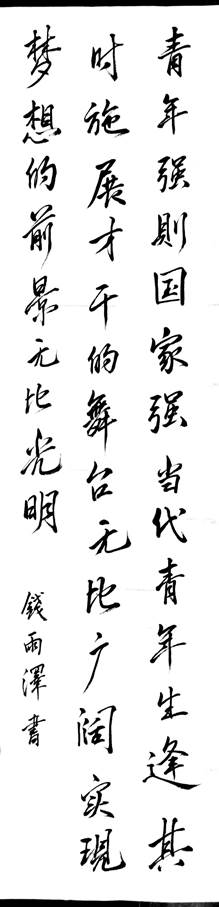 青年强則国家强当代青年生逢其
时施展才干的舞台无比广阔实現
梦想的前景无比光明
錢雨澤書